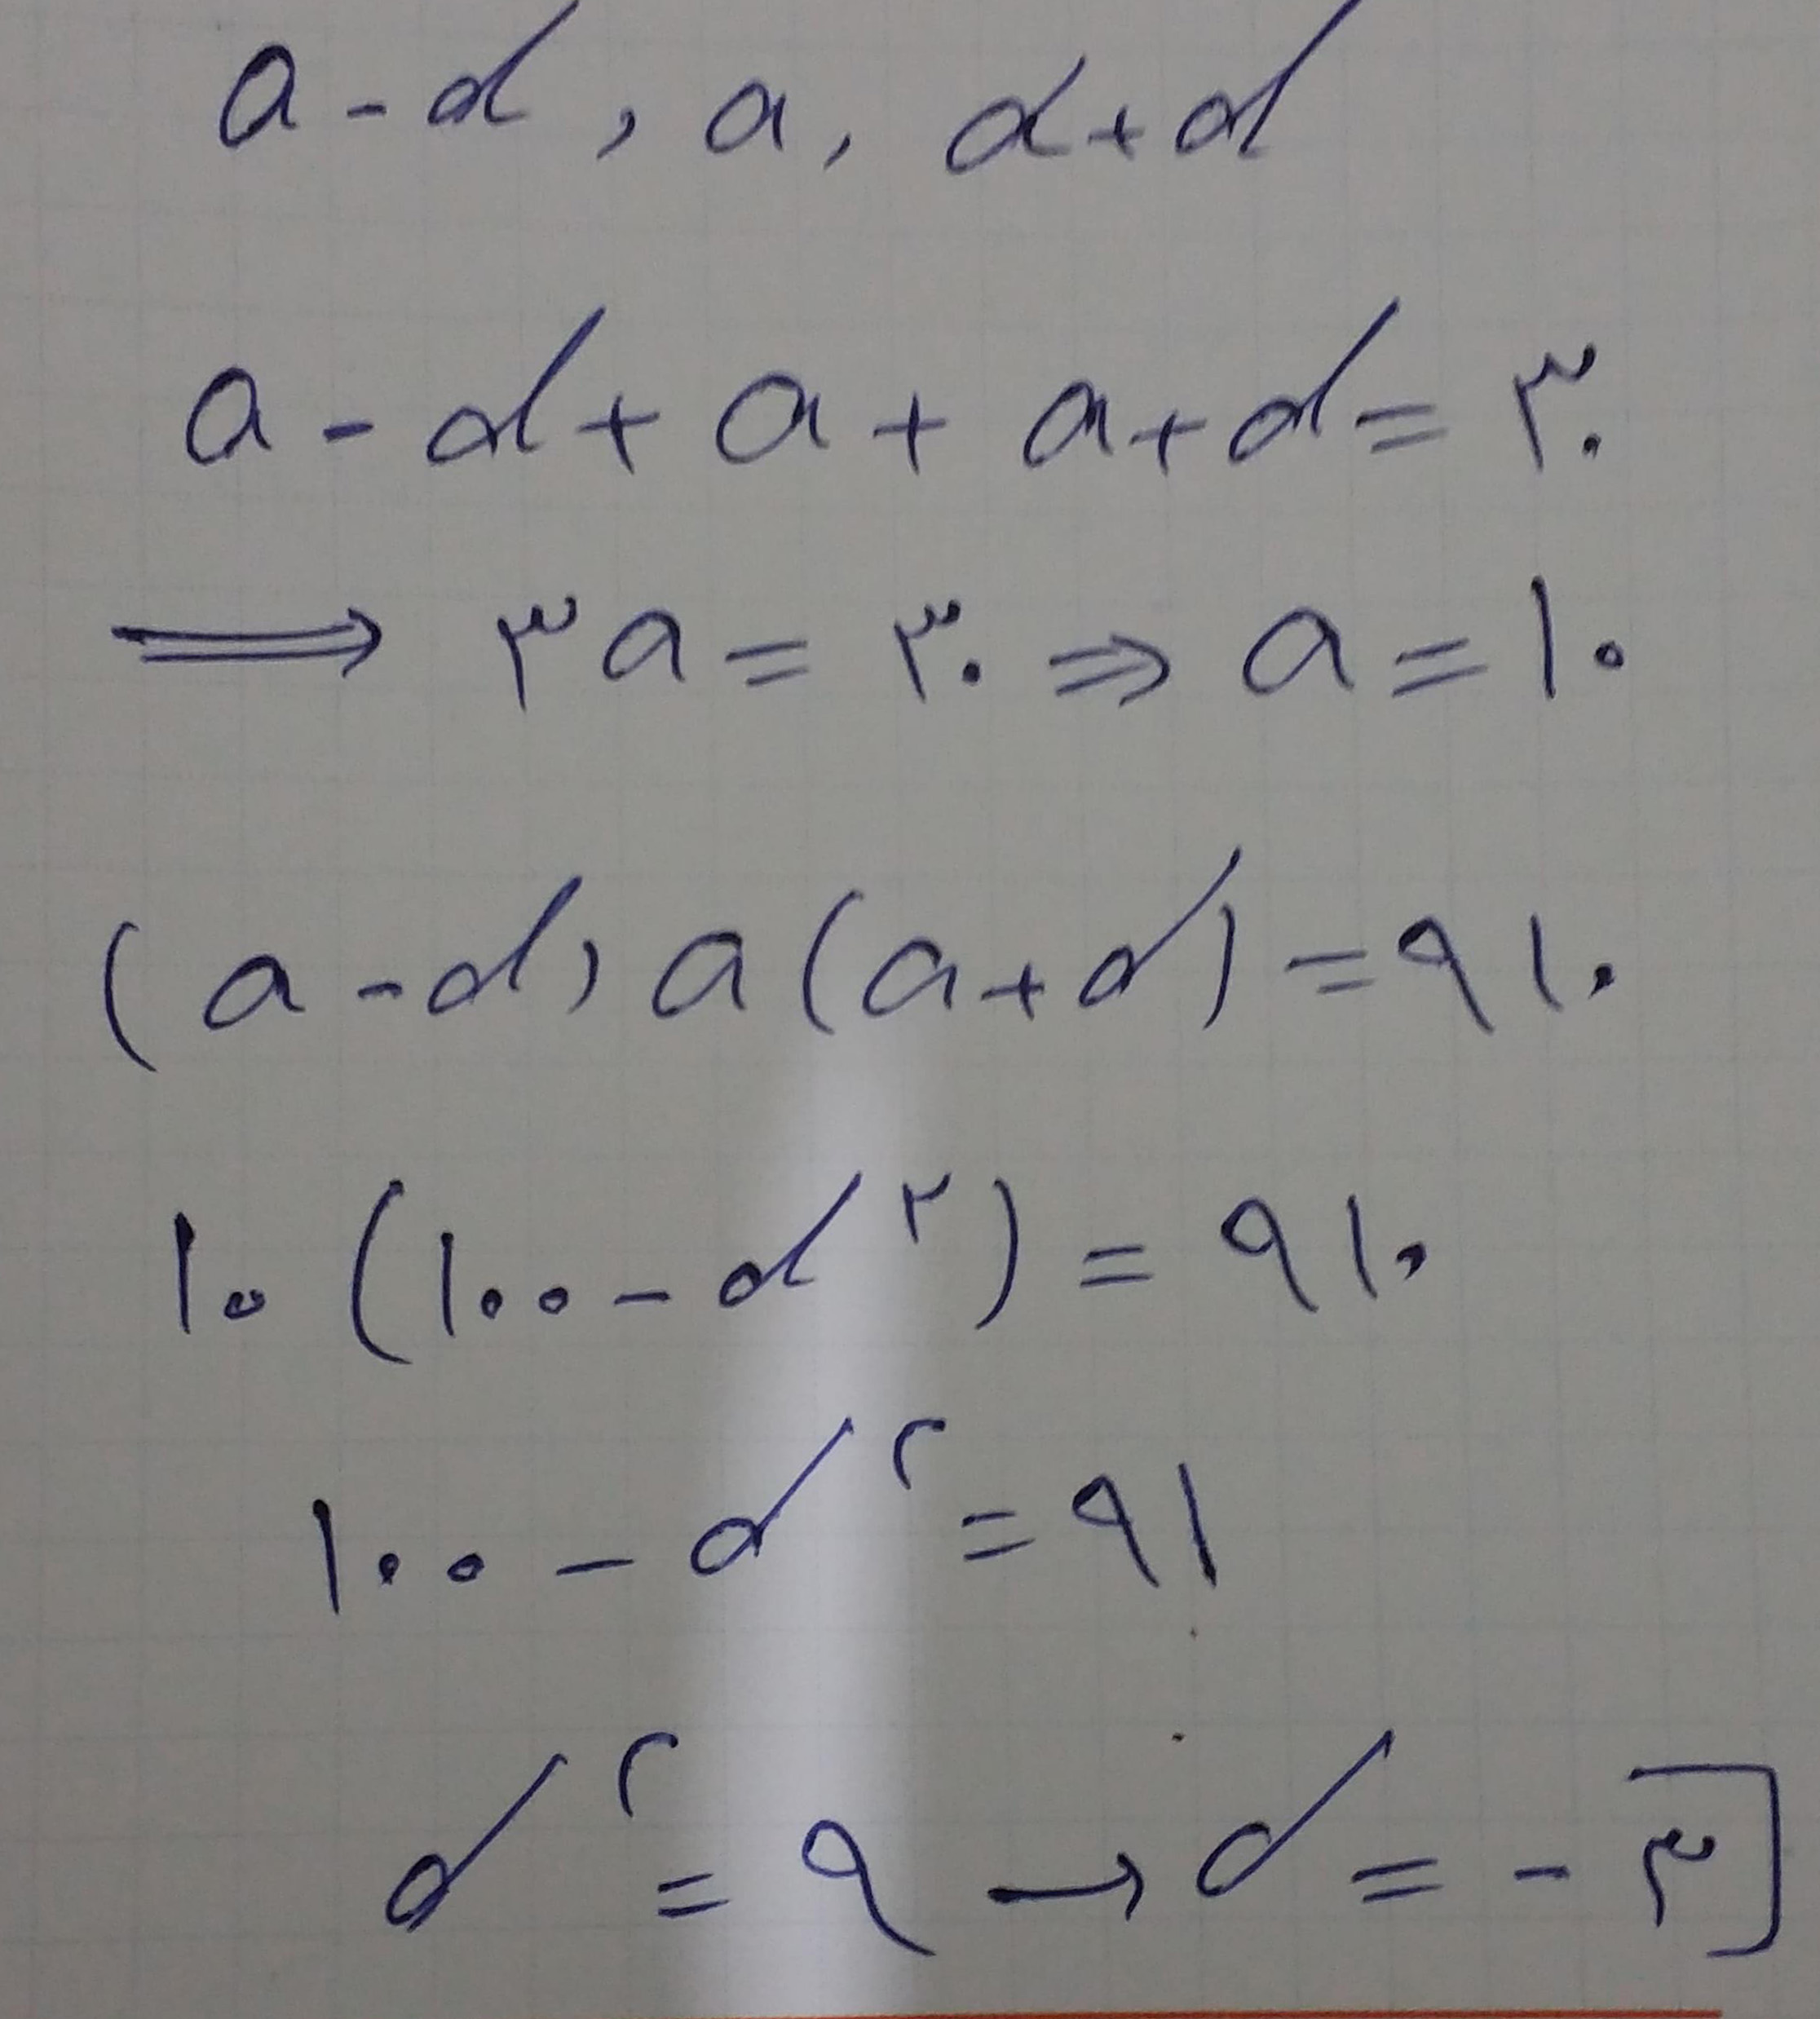 a - d , a , a + d
a - d + a + a + d = ۳۰
⟹ ۳a = ۳۰ ⇒ a = ۱۰
(a - d) a (a + d) = ۹۱۰
۱۰ (۱۰۰ - d^۲) = ۹۱۰
۱۰۰ - d^۲ = ۹۱
d^۲ = ۹ → d = - ۳